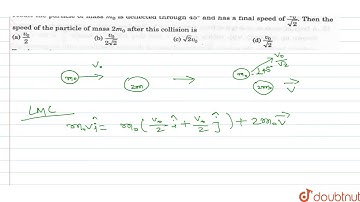 mass m₀ is deflected through 45° and has a final speed of v₀/√2. Then the
speed of the particle of mass 2m₀ after this collision is
(a) v₀/2 (b) v₀/2√2 (c) √2v₀ (d) v₀/√2
v₀ v₀/√2
m₀ 2m m₀ 45°
2m₀ v⃗
LMC
m₀v₀î = m₀(v₀/2 î + v₀/2 ĵ) + 2m₀v⃗
doubtnut